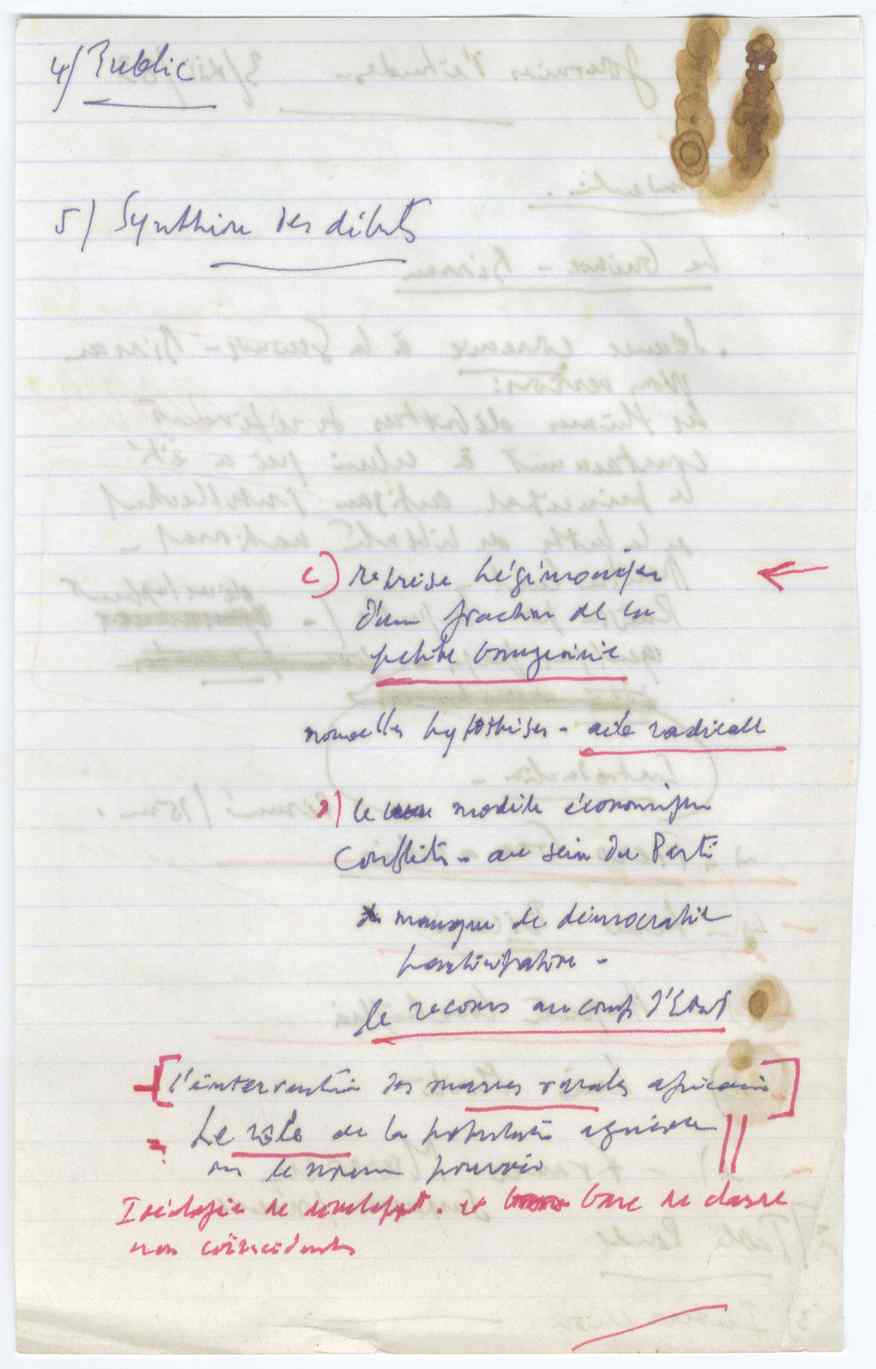 4/ Public
5/ Synthèse des débats
c) reprise hégémonique
d'une fraction de la
petite bourgeoisie
nouvelles hypothèses - aile radicale
2) le modèle économique
Conflits - au sein du Parti
manque de démocratie
participative -
le recours au coup d'Etat
[l'intervention des masses rurales africaines]
- Le rôle de la population agricole
le nouveau pouvoir
Idéologie de developpt. et base de classe
non coïncidents